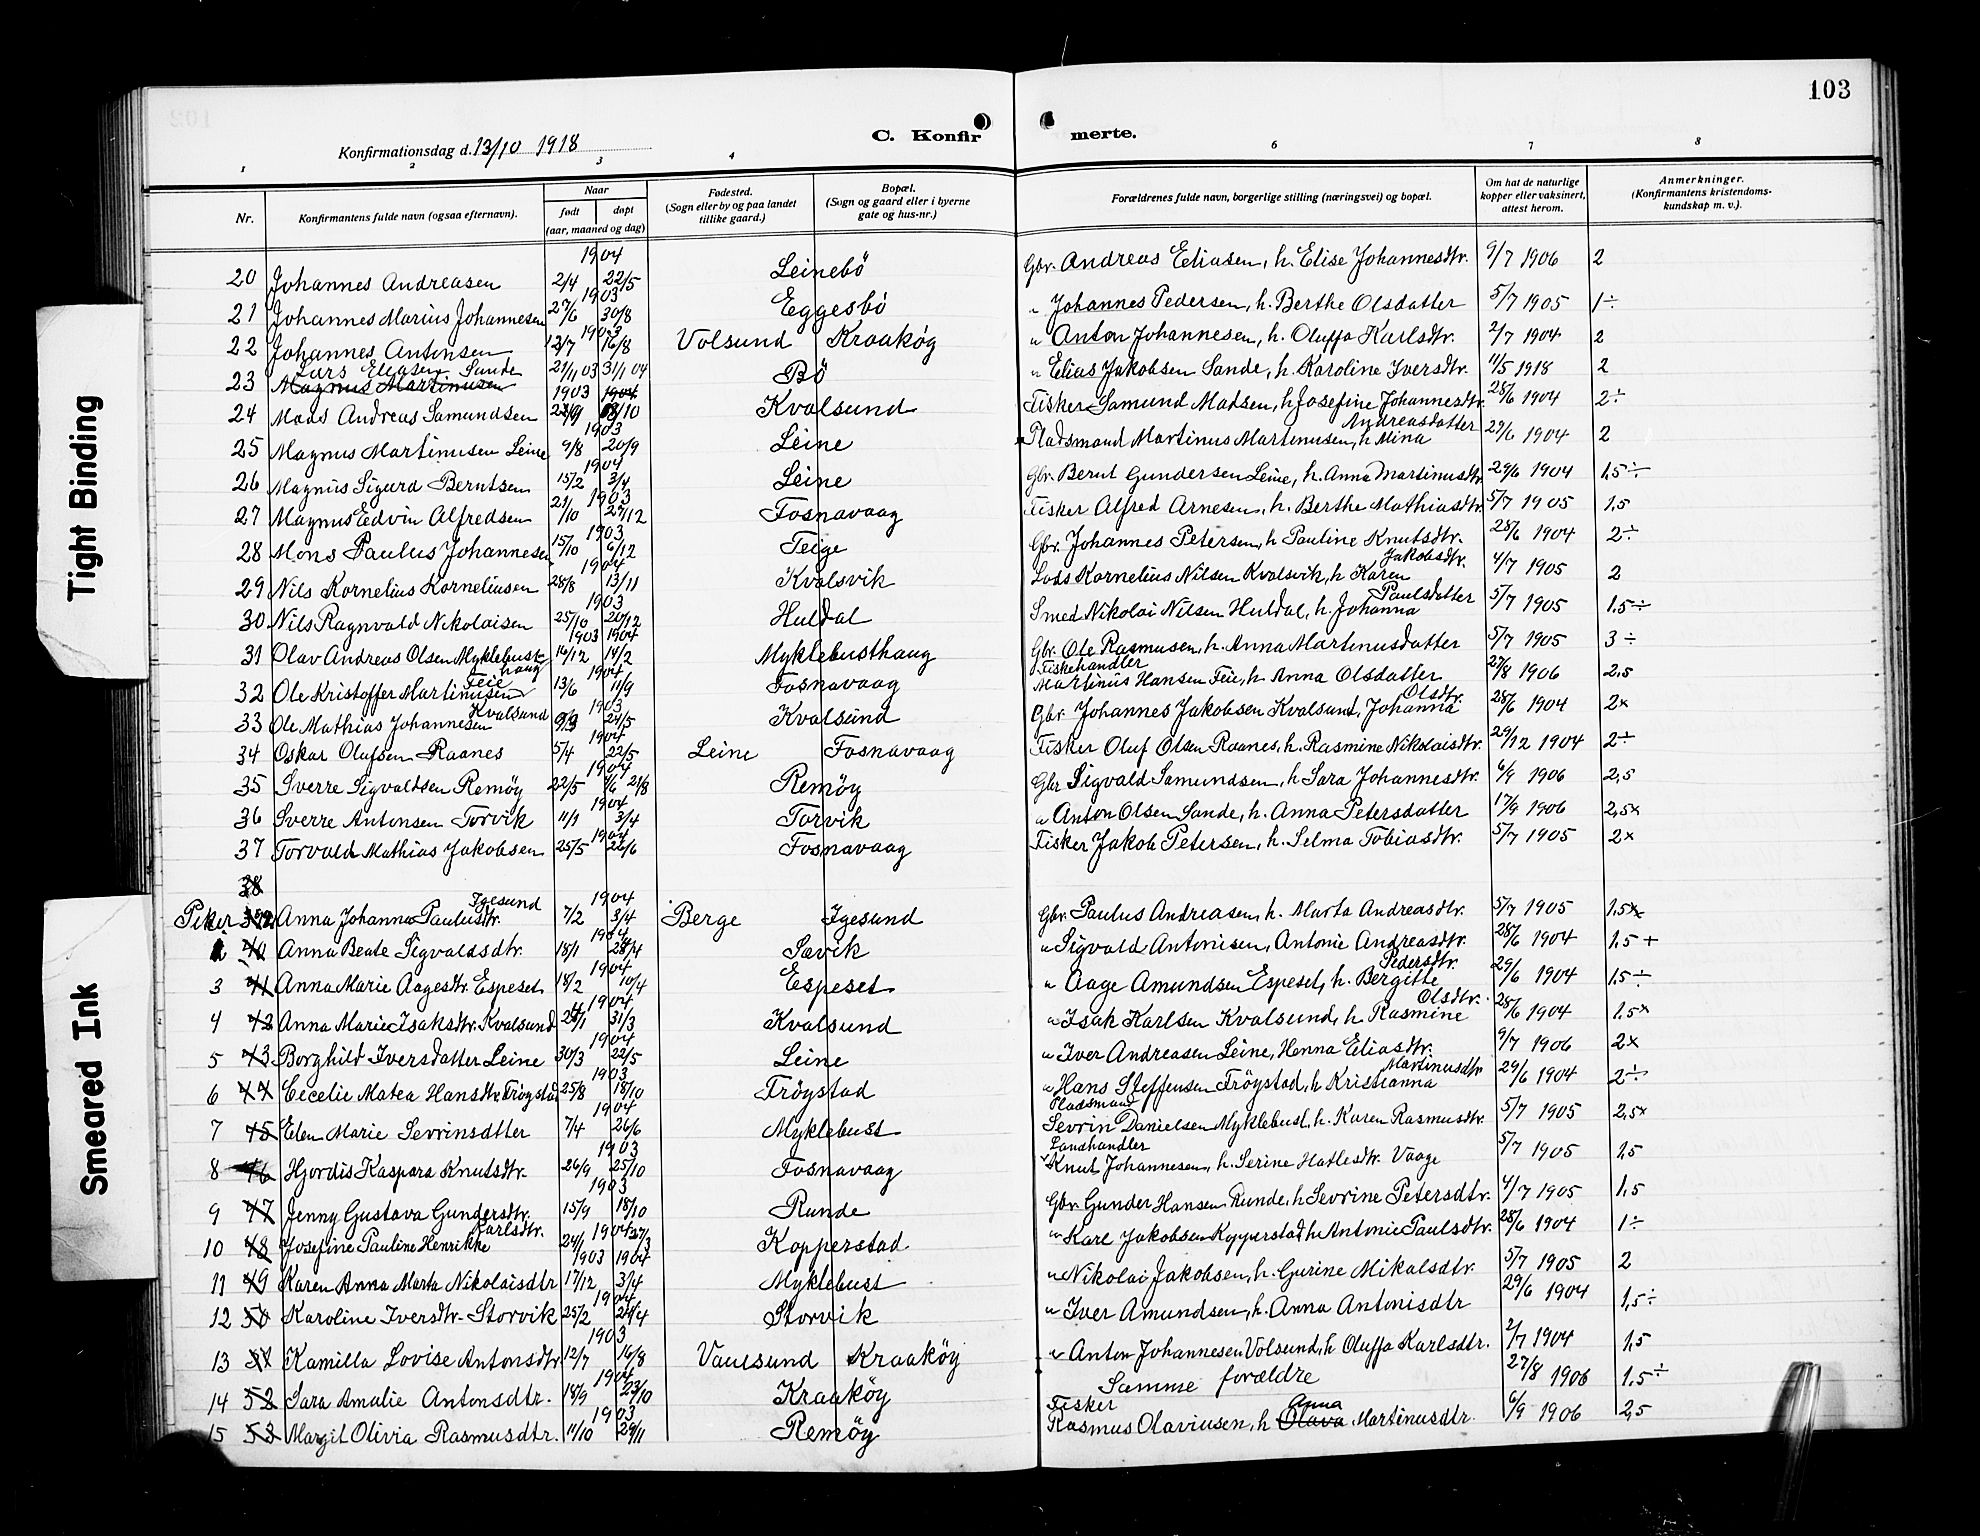 103
C. Konfirmerte.
Konfirmationsdag d. 13/10 1918
1 2 3 4 6 7 8
Nr. Konfirmantens fulde navn (ogsaa efternavn). Naar født døpt (aar, maaned og dag) Fødested. (Sogn eller by og paa landet tillike gaard.) Bopæl. (Sogn og gaard eller i byerne gate og hus-nr.) Forældrenes fulde navn, borgerlige stilling (næringsvei) og bopæl. Om hat de naturlige kopper eller vaksinert, attest herom. Anmerkninger. (Konfirmantens kristendoms-kundskap m. v.).
20 Johannes Andreasen 1904 2/4 22/5 Leinebö Gbr. Andreas Eliasen, h. Elise Johannesdtr. 9/7 1906 2
21 Johannes Marius Johannesen 1903 27/6 30/8 Eggesbö " Johannes Pedersen, h. Berthe Olsdatter 5/7 1905 1÷
22 Johannes Antonsen 1903 12/7 16/8 Volsund Kraakøy " Anton Johannesen, h. Oluffa Karlsdtr. 2/7 1904 2
23 Lars Eliasen Sande Magnus Martinusen 21/11 03 31/1 04 Bö " Elias Jakobsen Sande, h. Karoline Iversdtr. 11/5 1918 2
24 Mads Andreas Samundsen 1903 1904 22/9 18/10 Kvalsund Fisker Samund Madsen, h Josefine Johannesdtr. 28/6 1904 2÷
25 Magnus Martinusen Leine 1903 9/8 20/9 Leine Pladsmand Martinus Martinusen, h Mina Andreasdatter 27/6 1904 2
26 Magnus Sigurd Berntsen 1904 15/2 3/4 Leine Gbr. Bernt Gundersen Leine, h. Anna Martinusdtr 29/6 1904 1,5÷
27 Magnus Edvin Alfredsen 1903 21/10 27/12 Fosnavaag Fisker Alfred Arnesen, h. Berthe Mathiasdtr. 5/7 1905 1,5
28 Mons Paulus Johannesen 1903 15/10 6/12 Teige Gbr. Johannes Petersen, h Pauline Knutsdtr. 28/6 1904 2÷
29 Nils Kornelius Korneliusen 1904 28/8 13/11 Kvalsvik Lods Kornelius Nilsen Kvalsvik, h Karen Jakobsdtr. 4/7 1905 2
30 Nils Ragnvald Nikolaisen 1903 25/10 20/12 Huldal Smed Nikolai Nilsen Huldal, h. Johanna Paulsdatter 5/7 1905 1,5÷
31 Olav Andreas Olsen Myklebusthaug 1903 1904 16/12 14/2 Myklebusthaug Gbr. Ole Rasmusen, h. Anna Martinusdatter 5/7 1905 3÷
32 Ole Kristoffer Martinusen Feie 1904 13/6 11/9 Fosnavaag Fiskehandler Martinus Hansen Feie, h Anna Olsdatter 27/8 1906 2,5
33 Ole Mathias Johannesen Kvalsund 1903 9/3 24/5 Kvalsund Gbr. Johannes Jakobsen Kvalsund, Johanna Olsdtr. 28/6 1904 2x
34 Oskar Olufsen Raanes 1904 5/4 22/5 Leine Fosnavaag Fisker Oluf Olsen Raanes, h. Rasmine Nikolaisdtr. 29/12 1904 2÷
35 Sverre Sigvaldsen Remöy 1904 22/5 7/6 21/8 Remöy Gbr Sigvald Samundsen, h Sara Johannesdtr. 6/9 1906 2,5
36 Sverre Antonsen Torvik 1904 11/1 3/4 Torvik " Anton Olsen Sande, h. Anna Petersdatter 17/9 1906 2,5x
37 Torvald Mathias Jakobsen 1904 25/5 26/6 Fosnavaag Fisker Jakob Petersen, h. Selma Tobiasdtr. 5/7 1905 2x
38
Piker 39 Anna Johanna Paulusdtr. Igesund 1904 7/2 3/4 Berge Igesund Gbr. Paulus Andreasen, h. Marta Andreasdtr. 5/7 1905 1,5x
2 40 Anna Beate Sigvaldsdtr. 1904 18/1 24/4 Sævik " Sigvald Antonisen, Antonie Andreasdtr. 28/6 1904 1,5+
3 41 Anna Marie Aagesdtr. Espeset 1904 18/2 10/4 Espeset " Aage Amundsen Espeset, h. Bergitte Pedersdtr. 29/6 1904 1,5÷
4 42 Anna Marie Isaksdtr. Kvalsund 1904 24/1 31/3 Kvalsund " Isak Karlsen Kvalsund, h Rasmine Olsdtr. 28/6 1904 1,5x
5 43 Borghild Iversdatter Leine 1904 30/3 22/5 Leine " Iver Andreasen Leine, Henna Eliasdtr. 9/7 1906 2x
6 44 Cecelie Matea Hansdtr. Fröystad 1903 25/8 18/10 Fröystad " Hans Steffensen Fröystad, h Kristianna Martinusdtr 29/6 1904 2÷
7 45 Elen Marie Sevrinsdtter 1904 7/4 26/6 Myklebust Pladsmand Sevrin Danielsen Myklebust, h. Karen Rasmusdtr. 5/7 1905 2,5x
8 46 Hjordis Kaspara Knutsdtr. 1903 26/9 25/10 Fosnavaag Landhandler Knut Johannesen, h. Serine Hatlesdtr. Vaage 5/7 1905 1,5
9 47 Jenny Gustava Gundersdtr. 1903 15/9 18/10 Runde Gbr. Gunder Hansen Runde, h Sevrine Petersdtr. 4/7 1905 1,5
10 48 Josefine Pauline Henrikke Karlsdtr. 1904 24/1 27/3 Kopperstad " Karl Jakobsen Kopperstad h. Antonie Paulsdtr. 28/6 1904 1÷
11 49 Karen Anna Marta Nikolaisdtr 1903 1904 17/12 3/4 Myklebust " Nikolai Jakobsen, h. Gurine Mikalsdtr. 5/7 1905 2
12 50 Karoline Iversdtr. Storvik 1904 25/2 24/4 Storvik " Iver Amundsen, h. Anna Antonisdtr 29/6 1904 1,5÷
13 51 Kamilla Lovise Antonsdtr 1903 12/7 16/8 Vaulsund Kraaköy " Anton Johannesen Volsund, h Oluffa Karlsdtr. 2/7 1904 1,5
14 52 Sara Amalie Antonsdtr. 1904 18/9 23/10 Kraaköy Samme forældre 27/8 1906 1,5÷
15 53 Margit Olivia Rasmusdtr. 1903 11/10 29/11 Remöy Fisker Rasmus Olaviusen, h Olava Anna Martinusdtr. 6/9 1906 2,5
Tight Binding
Smeared Ink